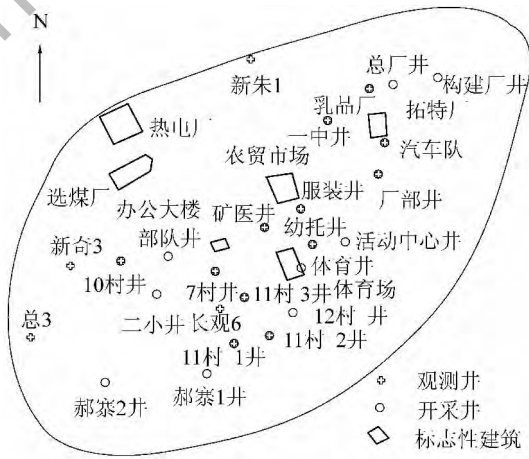 N
总厂井
新朱1
构建厂井
乳品厂
拓特厂
一中井
热电厂
汽车队
农贸市场
选煤厂
服装井
厂部井
办公大楼
矿医井
部队井
幼托井
活动中心井
新奇3
体育井
10村井
7村井
11村 3井
体育场
总3
二小井
长观6
12村 井
11村 1井
11村 2井
郝寨2井
郝寨1井
观测井
开采井
标志性建筑